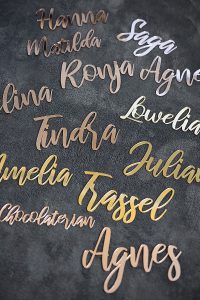 Hanna
Matilda
Saga
Ronja
Agnes
lina
Lowelia
Tindra
Julian
Amelia
Trassel
Chocolaterian
Agnes